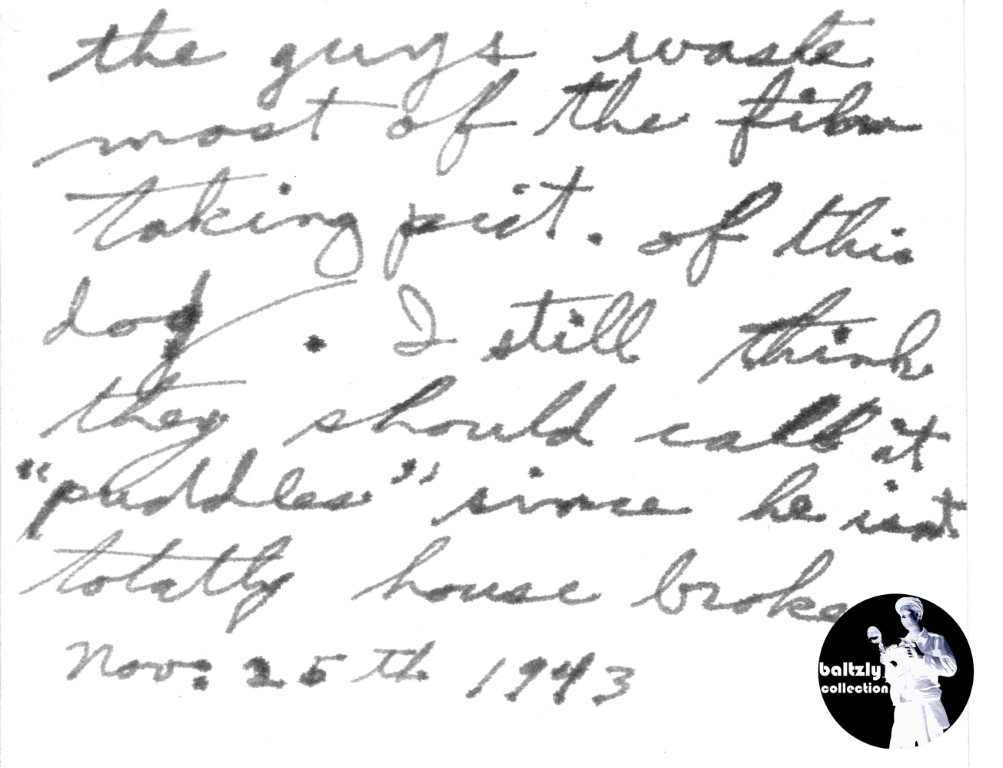 the guys waste
most of the film
taking pict. of this
dog. I still think
they should call it
"puddles" since he isnt
totatly house broke
Nov. 25th 1943
baltzly
collection